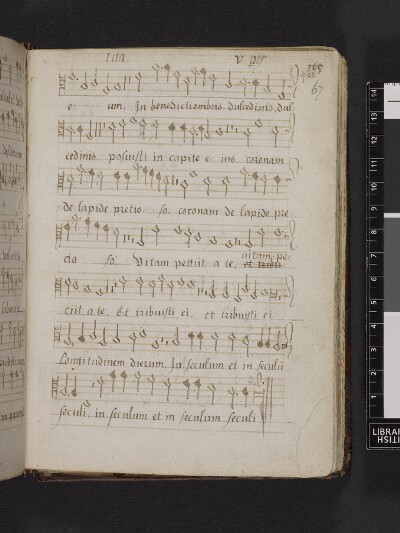 e um. In benedictionibus dulcedinis, dul
cedinis. posuisti in capite e ius. coronam
de lapide pretio so. coronam de lapide pre
cio so Vitam petiit a te, vitam pe
ciit a te, Et tribuisti ei, et tribuisti ei
Longitudinem dierum. In seculum et in seculū
seculi, in seculum et in seculum seculi
67
14
13
12
11
10
9
8
7
6
5
4
3
2
1